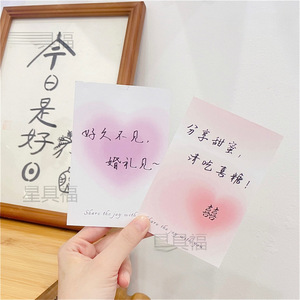 今日是好日
好久不见,
婚礼见~
Share the joy with
分享甜蜜,
来吃喜糖!
囍
share the joy
星具福
星具福